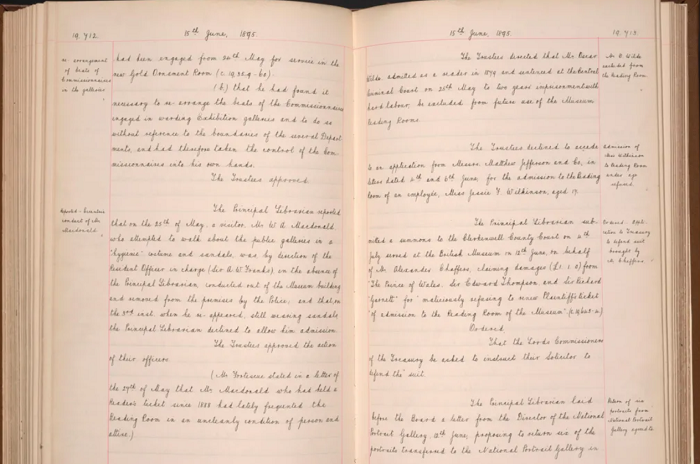 19,712.
15th June, 1895.
re-arrangement
of beats of
Commissionaires
in the galleries
had been engaged from 20th May for service in the
new Gold Ornament Room (c. 19,559-60).
(b) that he had found it
necessary to re-arrange the beats of the Commissionaires
engaged in warding Exhibition galleries and to do so
without reference to the boundaries of the several Depart-
ments, and had therefore taken the control of the Com-
missionaires into his own hands.
The Trustees approved.
Reported
conduct of Mr
Macdonald.
The Principal Librarian reported
that on the 25th of May, a visitor, Mr. W. A. Macdonald
who attempted to walk about the public galleries in a
"hygienic" costume and sandals, was by direction of the
Resident Officer in charge (Sir A. W. Franks), in the absence of
the Principal Librarian, conducted out of the Museum building
and removed from the premises by the Police; and that, on
the 3rd inst. when he re-appeared, still wearing sandals,
the Principal Librarian declined to allow him admission.
The Trustees approved the action
of their officers.
(Mr. Fortescue stated in a letter of
the 27th of May that Mr. Macdonald who had held a
Reader's ticket since 1888 had lately frequented the
Reading Room in an uncleanly condition of person and
attire.)
15th June, 1895.
19,713
The Trustees directed that Mr. Oscar
Wilde admitted as a reader in 1879 and sentenced at the Central
Criminal Court on 25th May to two years' imprisonment with
hard labour, be excluded from future use of the Museum
Reading Rooms.
Mr. O. Wilde
excluded from
the Reading Room.
The Trustees declined to accede
to an application from Messrs. Matthew Jefferson and Co, in
letters dated 4th and 6th June, for the admission to the Reading
Room of an employee, Miss Jessie Y. Wilkinson, aged 17.
Admission of
Miss Wilkinson
to Reading Room
under age
refused.
The Principal Librarian sub-
mitted a summons to the Clerkenwell County Court on 4th
July served at the British Museum on 12th June, on behalf
of Mr. Alexander Chaffers, claiming damages (£1. 1. 0) from
"The Prince of Wales, Sir Edward Thompson and Sir Richard
Garnett" for "maliciously refusing to renew Plaintiff's ticket
of admission to the Reading Room of the Museum".
Ordered,
That the Lords Commissioners
of the Treasury be asked to instruct their Solicitor to
defend the suit.
to Treasury
to defend suit
brought by
Mr Chaffers.
The Principal Librarian laid
before the Board a letter from the Director of the National
Portrait Gallery, 12th June, proposing to return six of the
portraits transferred to the National Portrait Gallery in
Return of six
portraits from
National Portrait
Gallery agreed to